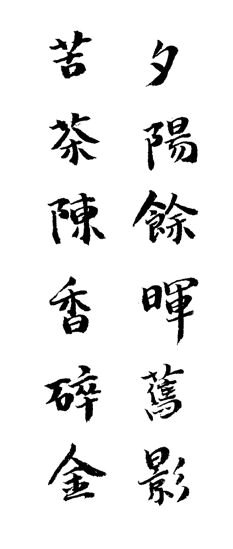 夕陽餘暉舊影
苦茶陳香碎金